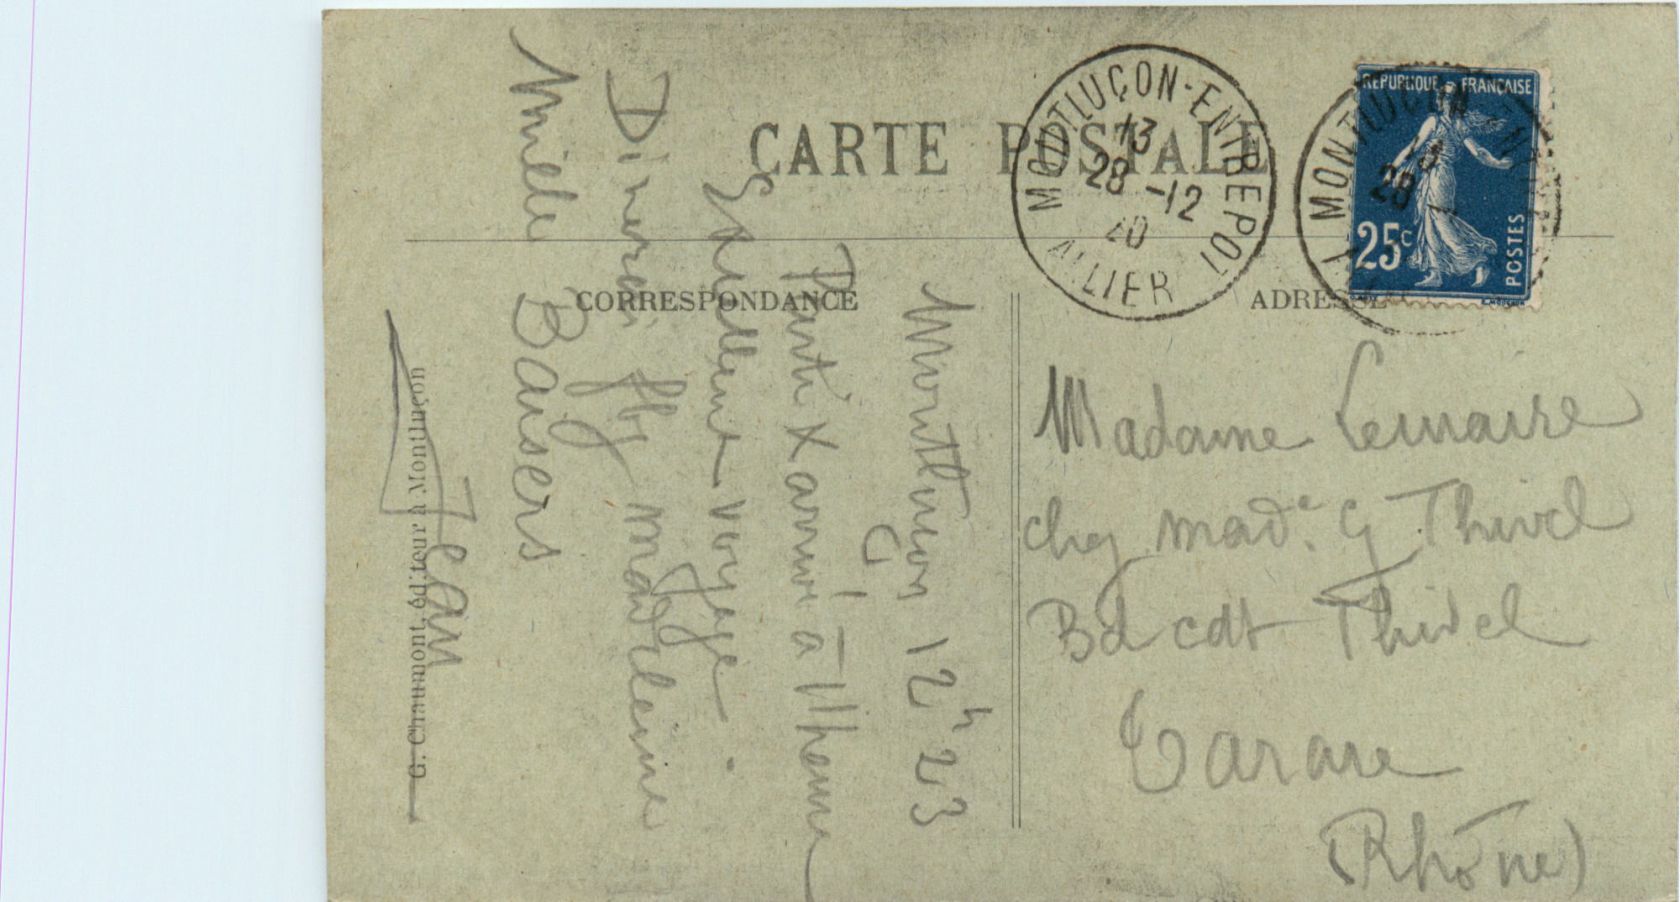 CARTE POSTALE
MONTLUÇON-ENTREPOT
13
28 -12
20
ALLIER
MONTLUÇON
28
REPUBLIQUE FRANÇAISE
25c
POSTES
CORRESPONDANCE
ADRESSE
Montluçon 12h 23
Parti & arrivé à l'heure
Excellent voyage.
Dinerai
Madeleine
Mille Baisers
Jean
Madame Lemaire
chez made G Thivel
Bd cdt Thivel
Tarare
(Rhône)
G. Chaumont, éditeur à Montluçon